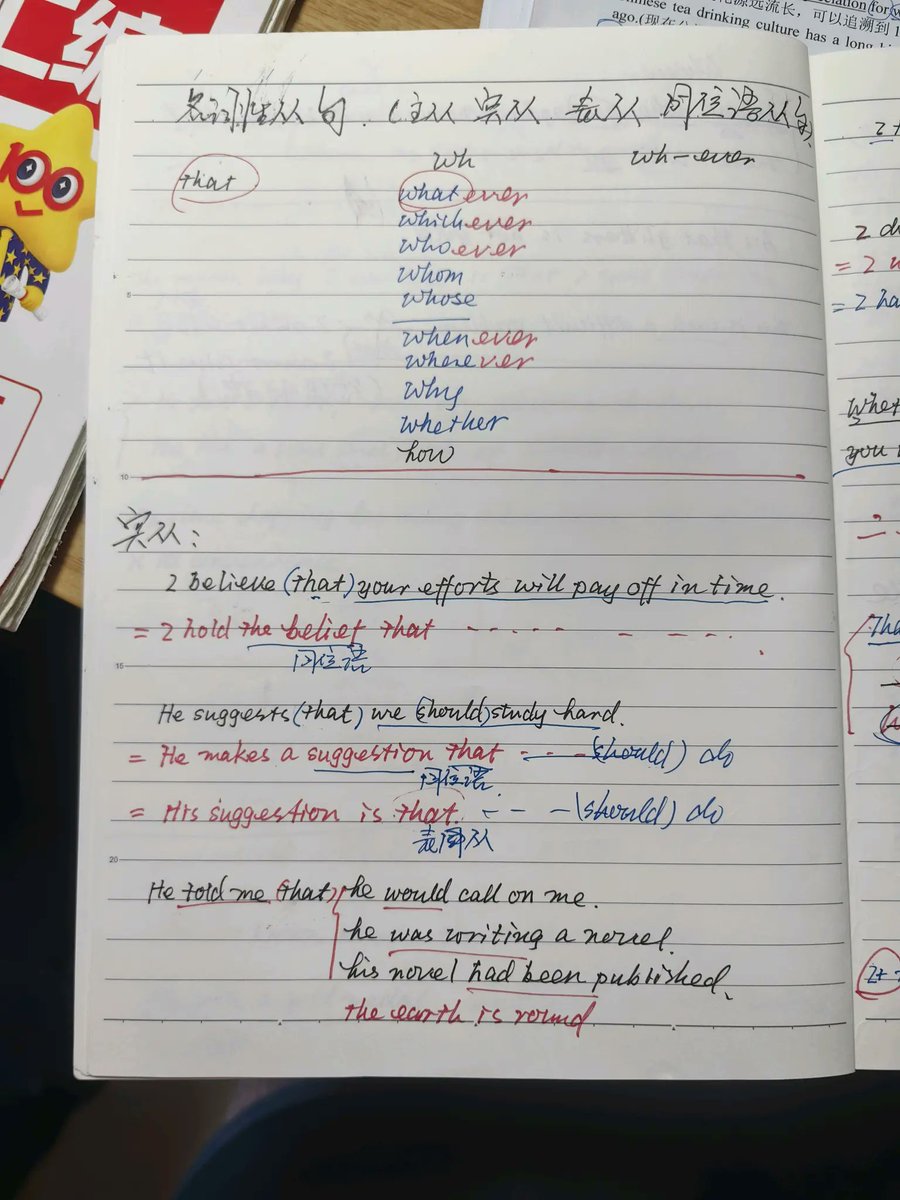 汇编
100
ciation for
源远流长，可以追溯到1
hinese tea drinking culture has a long hi
ago.(现在
名词性从句.（主从 宾从 表从 同位语从句）
wh wh-ever
that
whatever
whichever
whoever
whom
whose
whenever
wherever
why
whether
how
宾从：
I believe (that) your efforts will pay off in time.
= I hold the belief that ------ - ---.
同位语
He suggests (that) we (should) study hard.
= He makes a suggestion that ---- (should) do
同位语
= His suggestion is that --- (should) do
表从
He told me (that) he would call on me.
he was writing a novel.
his novel had been published.
the earth is round
5
10
15
20
I
= I
= I ha
Whet
you
Tha
It